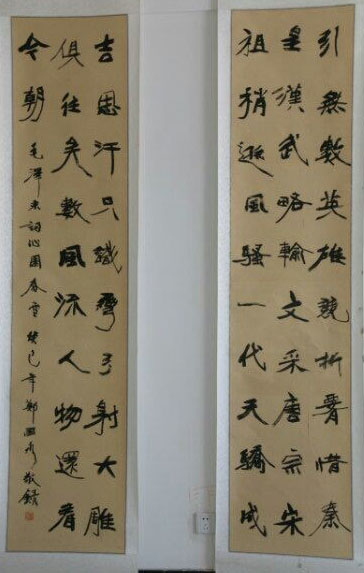 引無數英雄競折腰惜秦
皇漢武略輸文采唐宗宋
祖稍遜風騷一代天驕成
吉思汗只識彎弓射大雕
俱往矣數風流人物還看
今朝
毛澤東詞沁園春雪 癸巳年鄭 敬錄